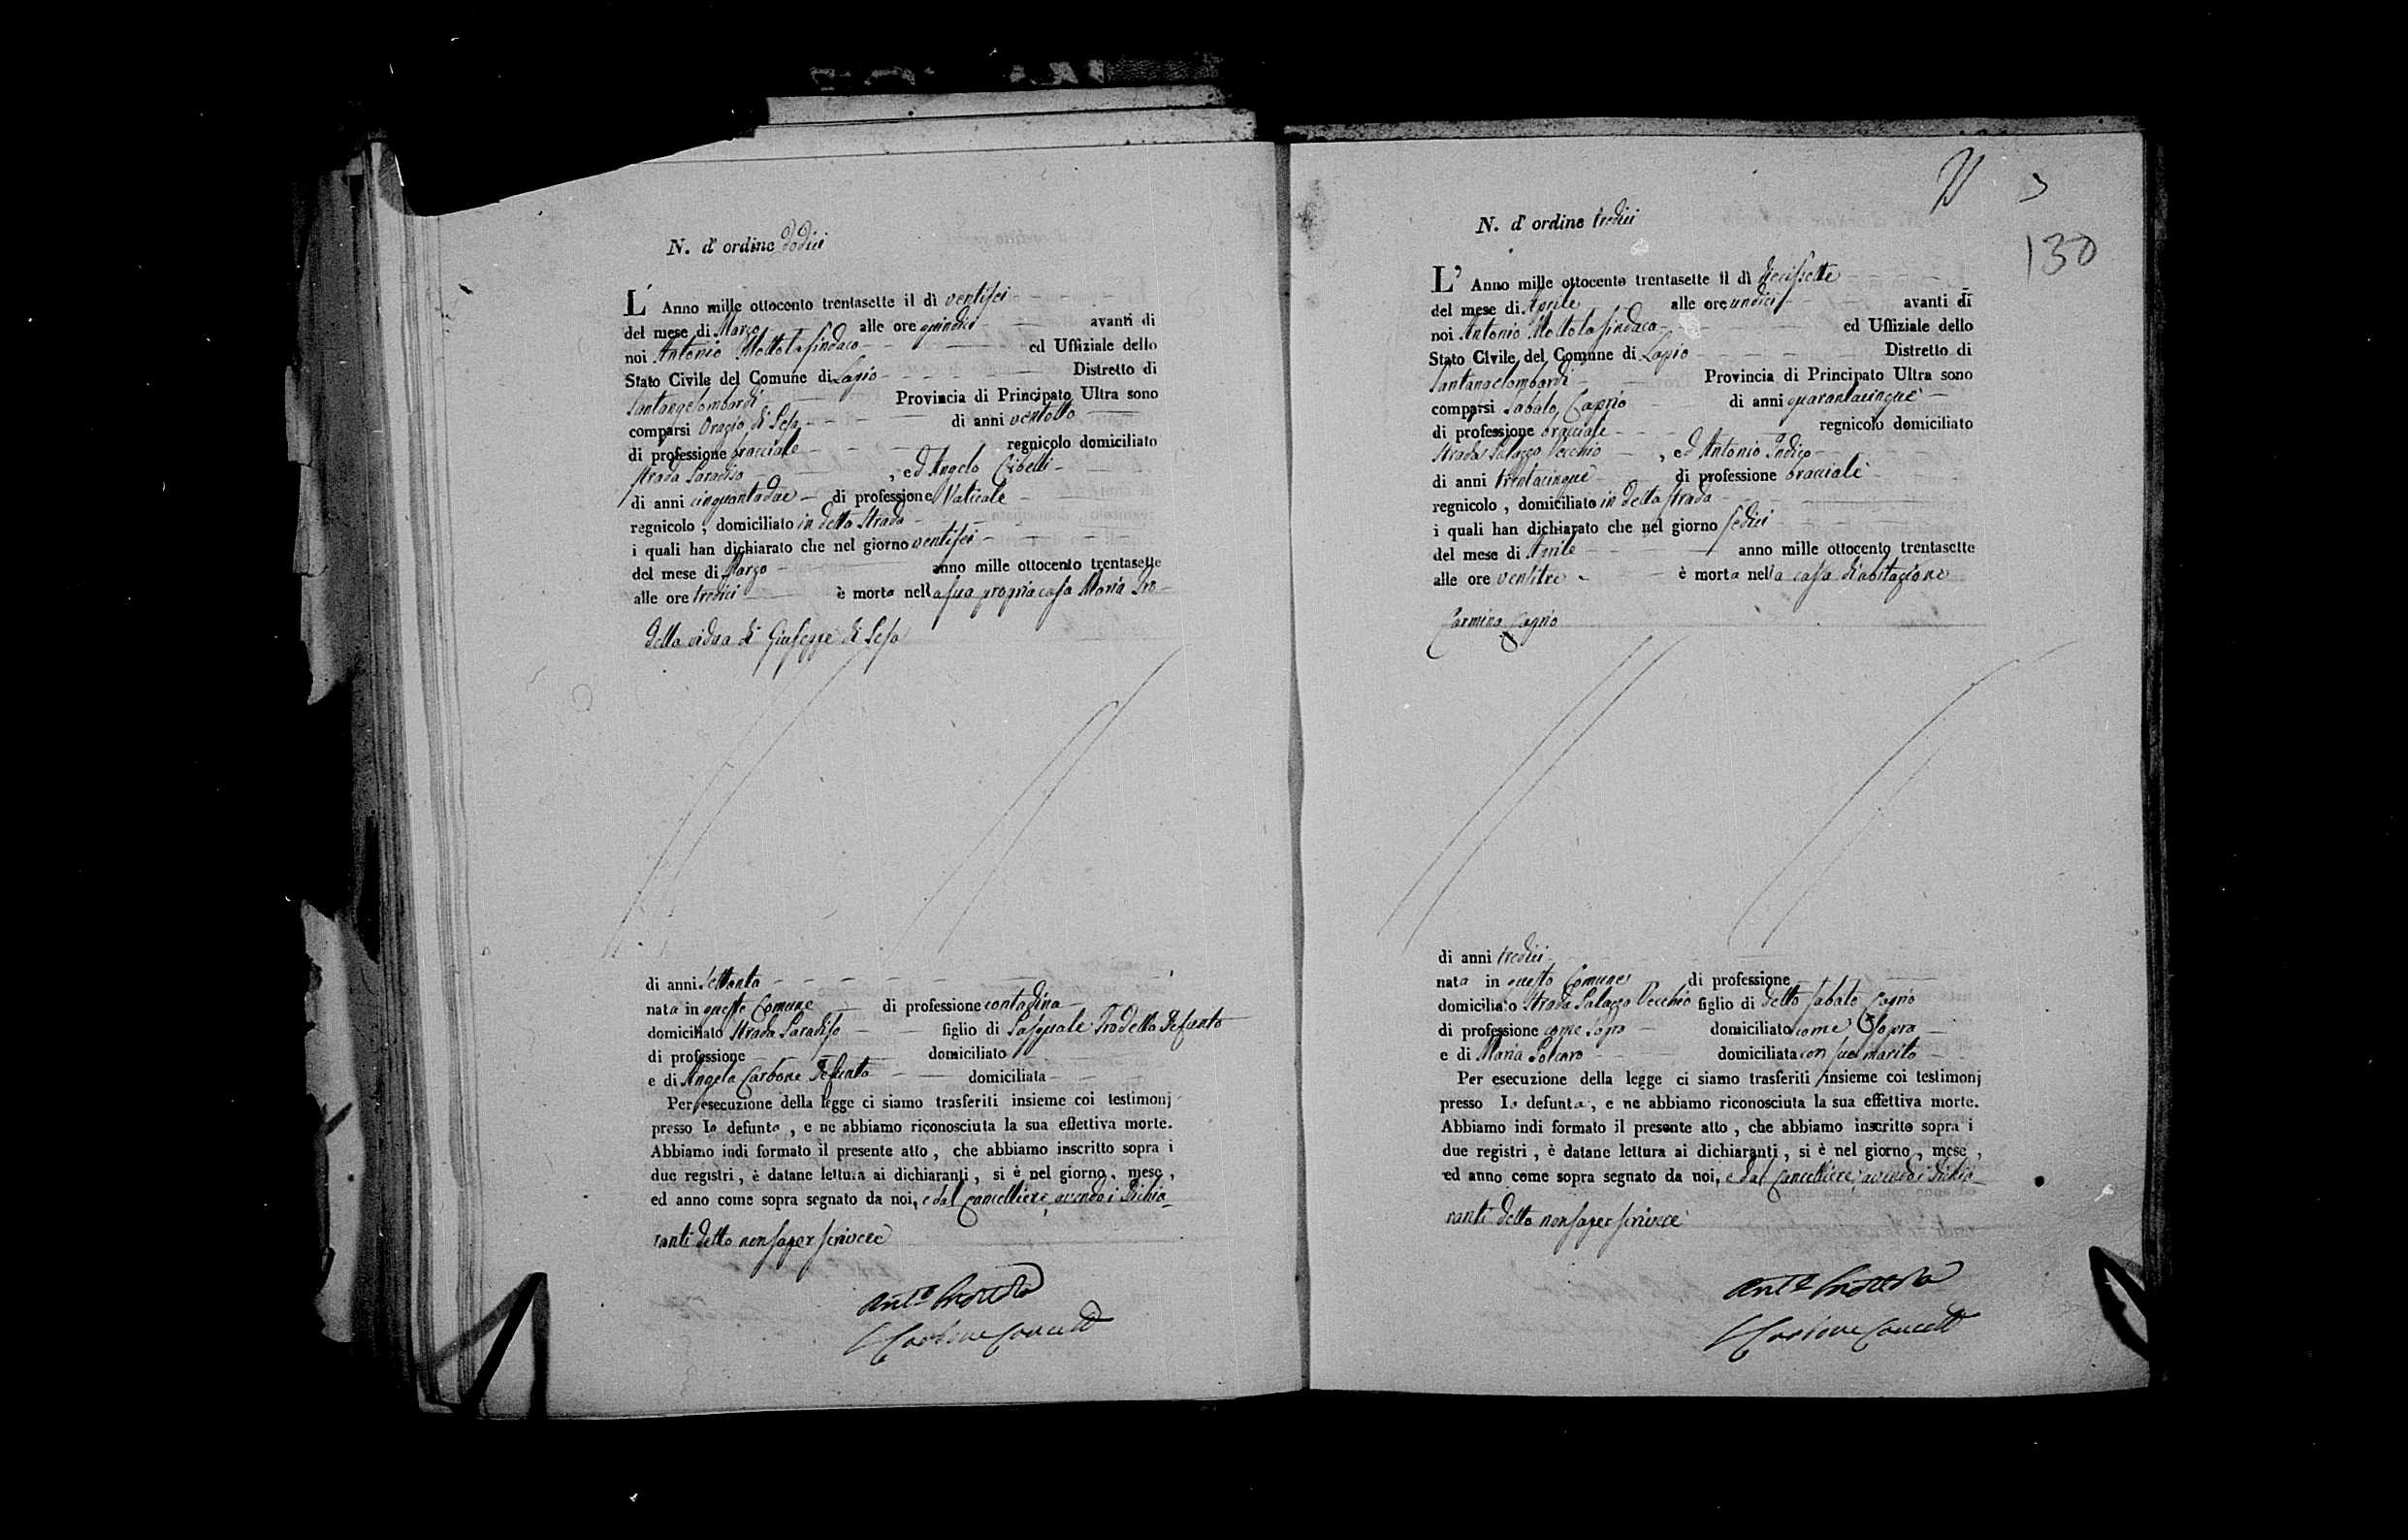 N. d'ordine dodici
L' Anno mille ottocento trentasette il dì ventisei
del mese di Marzo alle ore quindici avanti di
noi Antonio Mottola Sindaco ed Uffiziale dello
Stato Civile del Comune di Lapio Distretto di
Santangelombardi Provincia di Principato Ultra sono
comparsi Orazio di Seso di anni ventotto
di professione bracciale regnicolo domiciliato
Strada Paradiso , ed Angelo Cibelli
di anni cinquantadue di professione Vaticale
regnicolo , domiciliato in detta Strada
i quali han dichiarato che nel giorno ventisei
del mese di Marzo anno mille ottocento trentasette
alle ore tredici è morta nella sua propria casa Maria Pro-
della vidua di Giuseppe di Seso
di anni settanta
nata in questo Comune di professione contadina
domiciliato Strada Paradiso figlio di Pasquale Prodella Defunto
di professione domiciliato
e di Angela Carbone Defunta domiciliata
Per esecuzione della legge ci siamo trasferiti insieme coi testimonj
presso la defunta , e ne abbiamo riconosciuta la sua effettiva morte.
Abbiamo indi formato il presente atto , che abbiamo inscritto sopra i
due registri , è datane lettura ai dichiaranti , si è nel giorno , mese ,
ed anno come sopra segnato da noi, e dal Cancelliere, avendo i Dichia-
ranti detto non saper scrivere
Ant.º Mottola
Carbone Cancell
N. d' ordine tredici
130
L' Anno mille ottocento trentasette il dì diecissette
del mese di Aprile alle ore undici avanti di
noi Antonio Mottola Sindaco ed Uffiziale dello
Stato Civile del Comune di Lapio Distretto di
Santangelombardi Provincia di Principato Ultra sono
comparsi Sabato Caprio di anni quarantacinque
di professione bracciale regnicolo domiciliato
Strada Palazzo Vecchio , ed Antonio Indico
di anni trentacinque di professione bracciale
regnicolo , domiciliato in detta Strada
i quali han dichiarato che nel giorno sedici
del mese di Aprile anno mille ottocento trentasette
alle ore ventitre è morta nella casa d'abitazione
Carmina Caprio
di anni tredici
nata in questo Comune di professione
domiciliato Strada Palazzo Vecchio figlio di detto Sabato Caprio
di professione come sopra domiciliato come sopra
e di Maria Polcaro domiciliata con suo marito
Per esecuzione della legge ci siamo trasferiti insieme coi testimonj
presso la defunta , e ne abbiamo riconosciuta la sua effettiva morte.
Abbiamo indi formato il presente atto , che abbiamo inscritto sopra i
due registri , è datane lettura ai dichiaranti , si è nel giorno , mese ,
ed anno come sopra segnato da noi, e dal Cancelliere, avendo i Dichia-
ranti detto non saper scrivere
Ant.º Mottola
Carbone Cancell